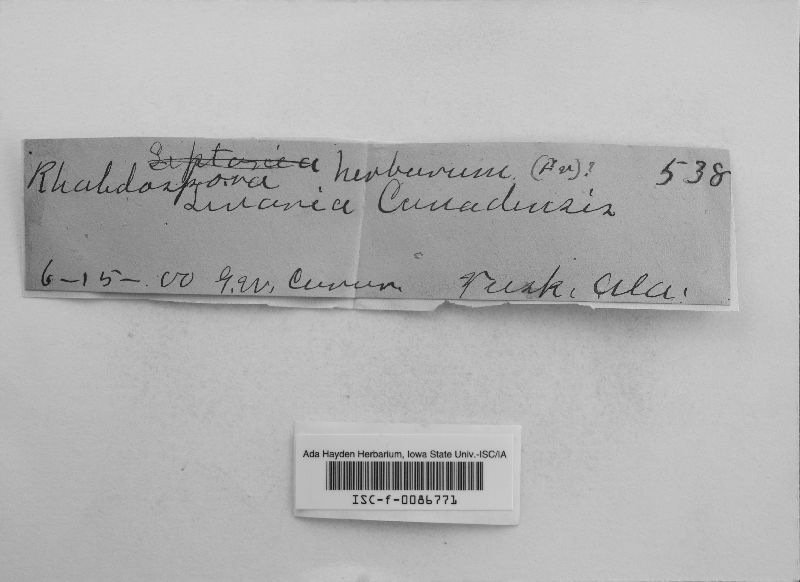 Septoria
Rhabdospora herbarum (Av)? 538
Linaria Canadensis
6-15-00 G.W. Carver Tusk. Ala.
Ada Hayden Herbarium, Iowa State Univ.-ISC/IA
ISC-f-0086771